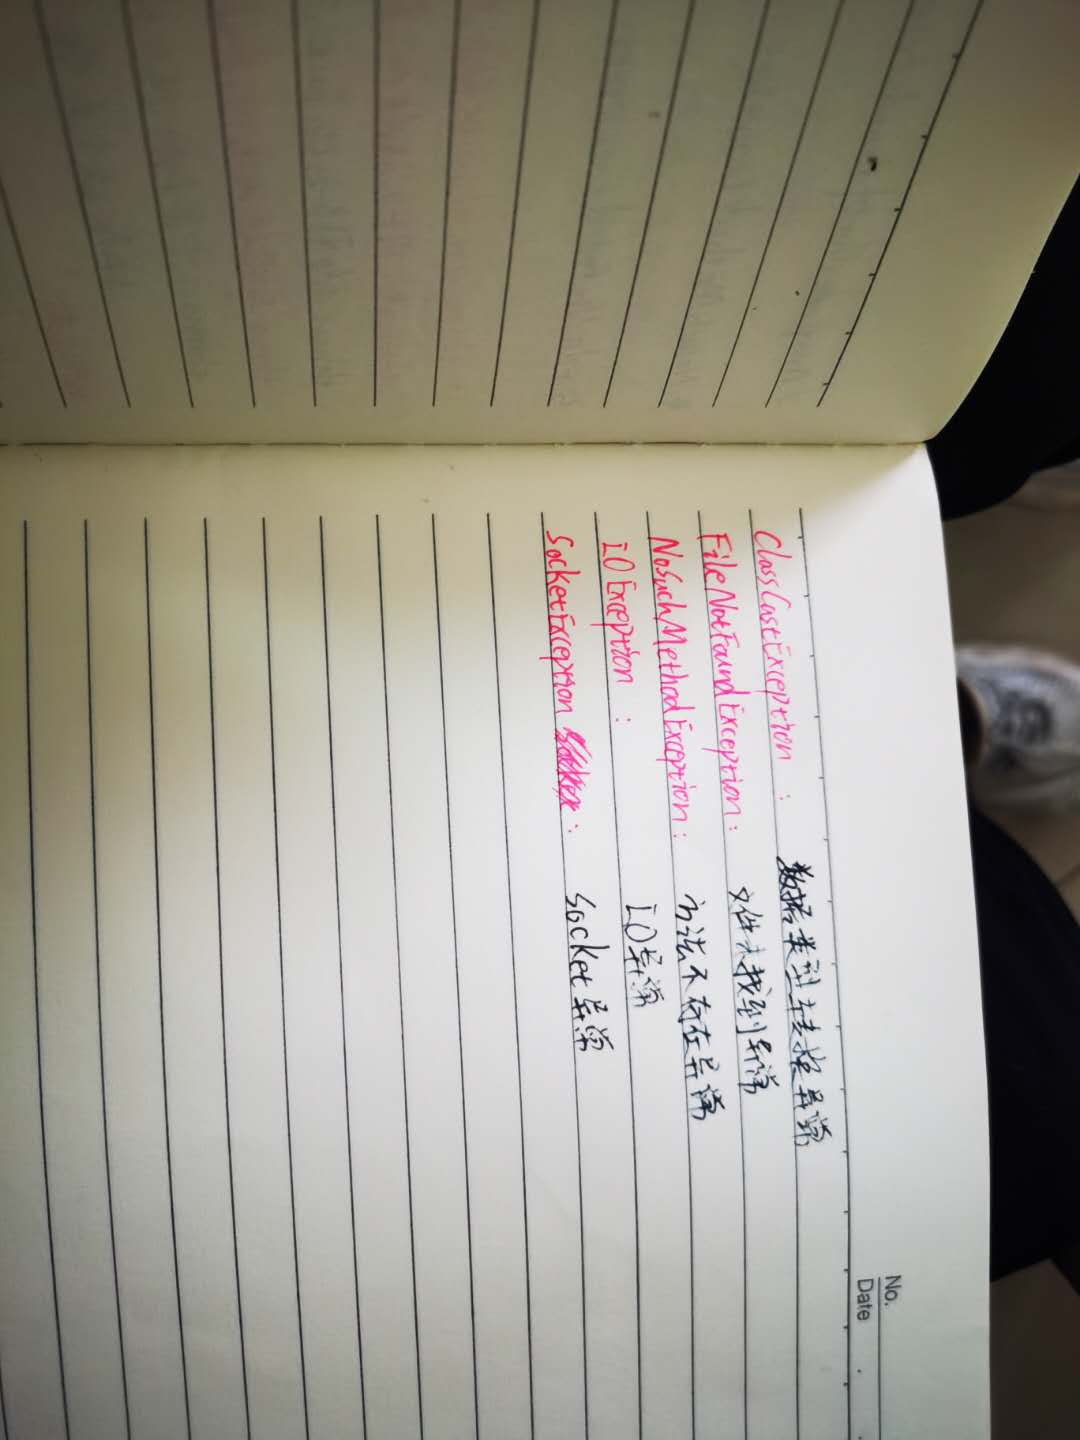 No.
Date
ClassCastException : 数据类型转换异常
FileNotFoundException: 文件未找到异常
NoSuchMethodException: 方法不存在异常
IOException : IO异常
SocketException : Socket异常